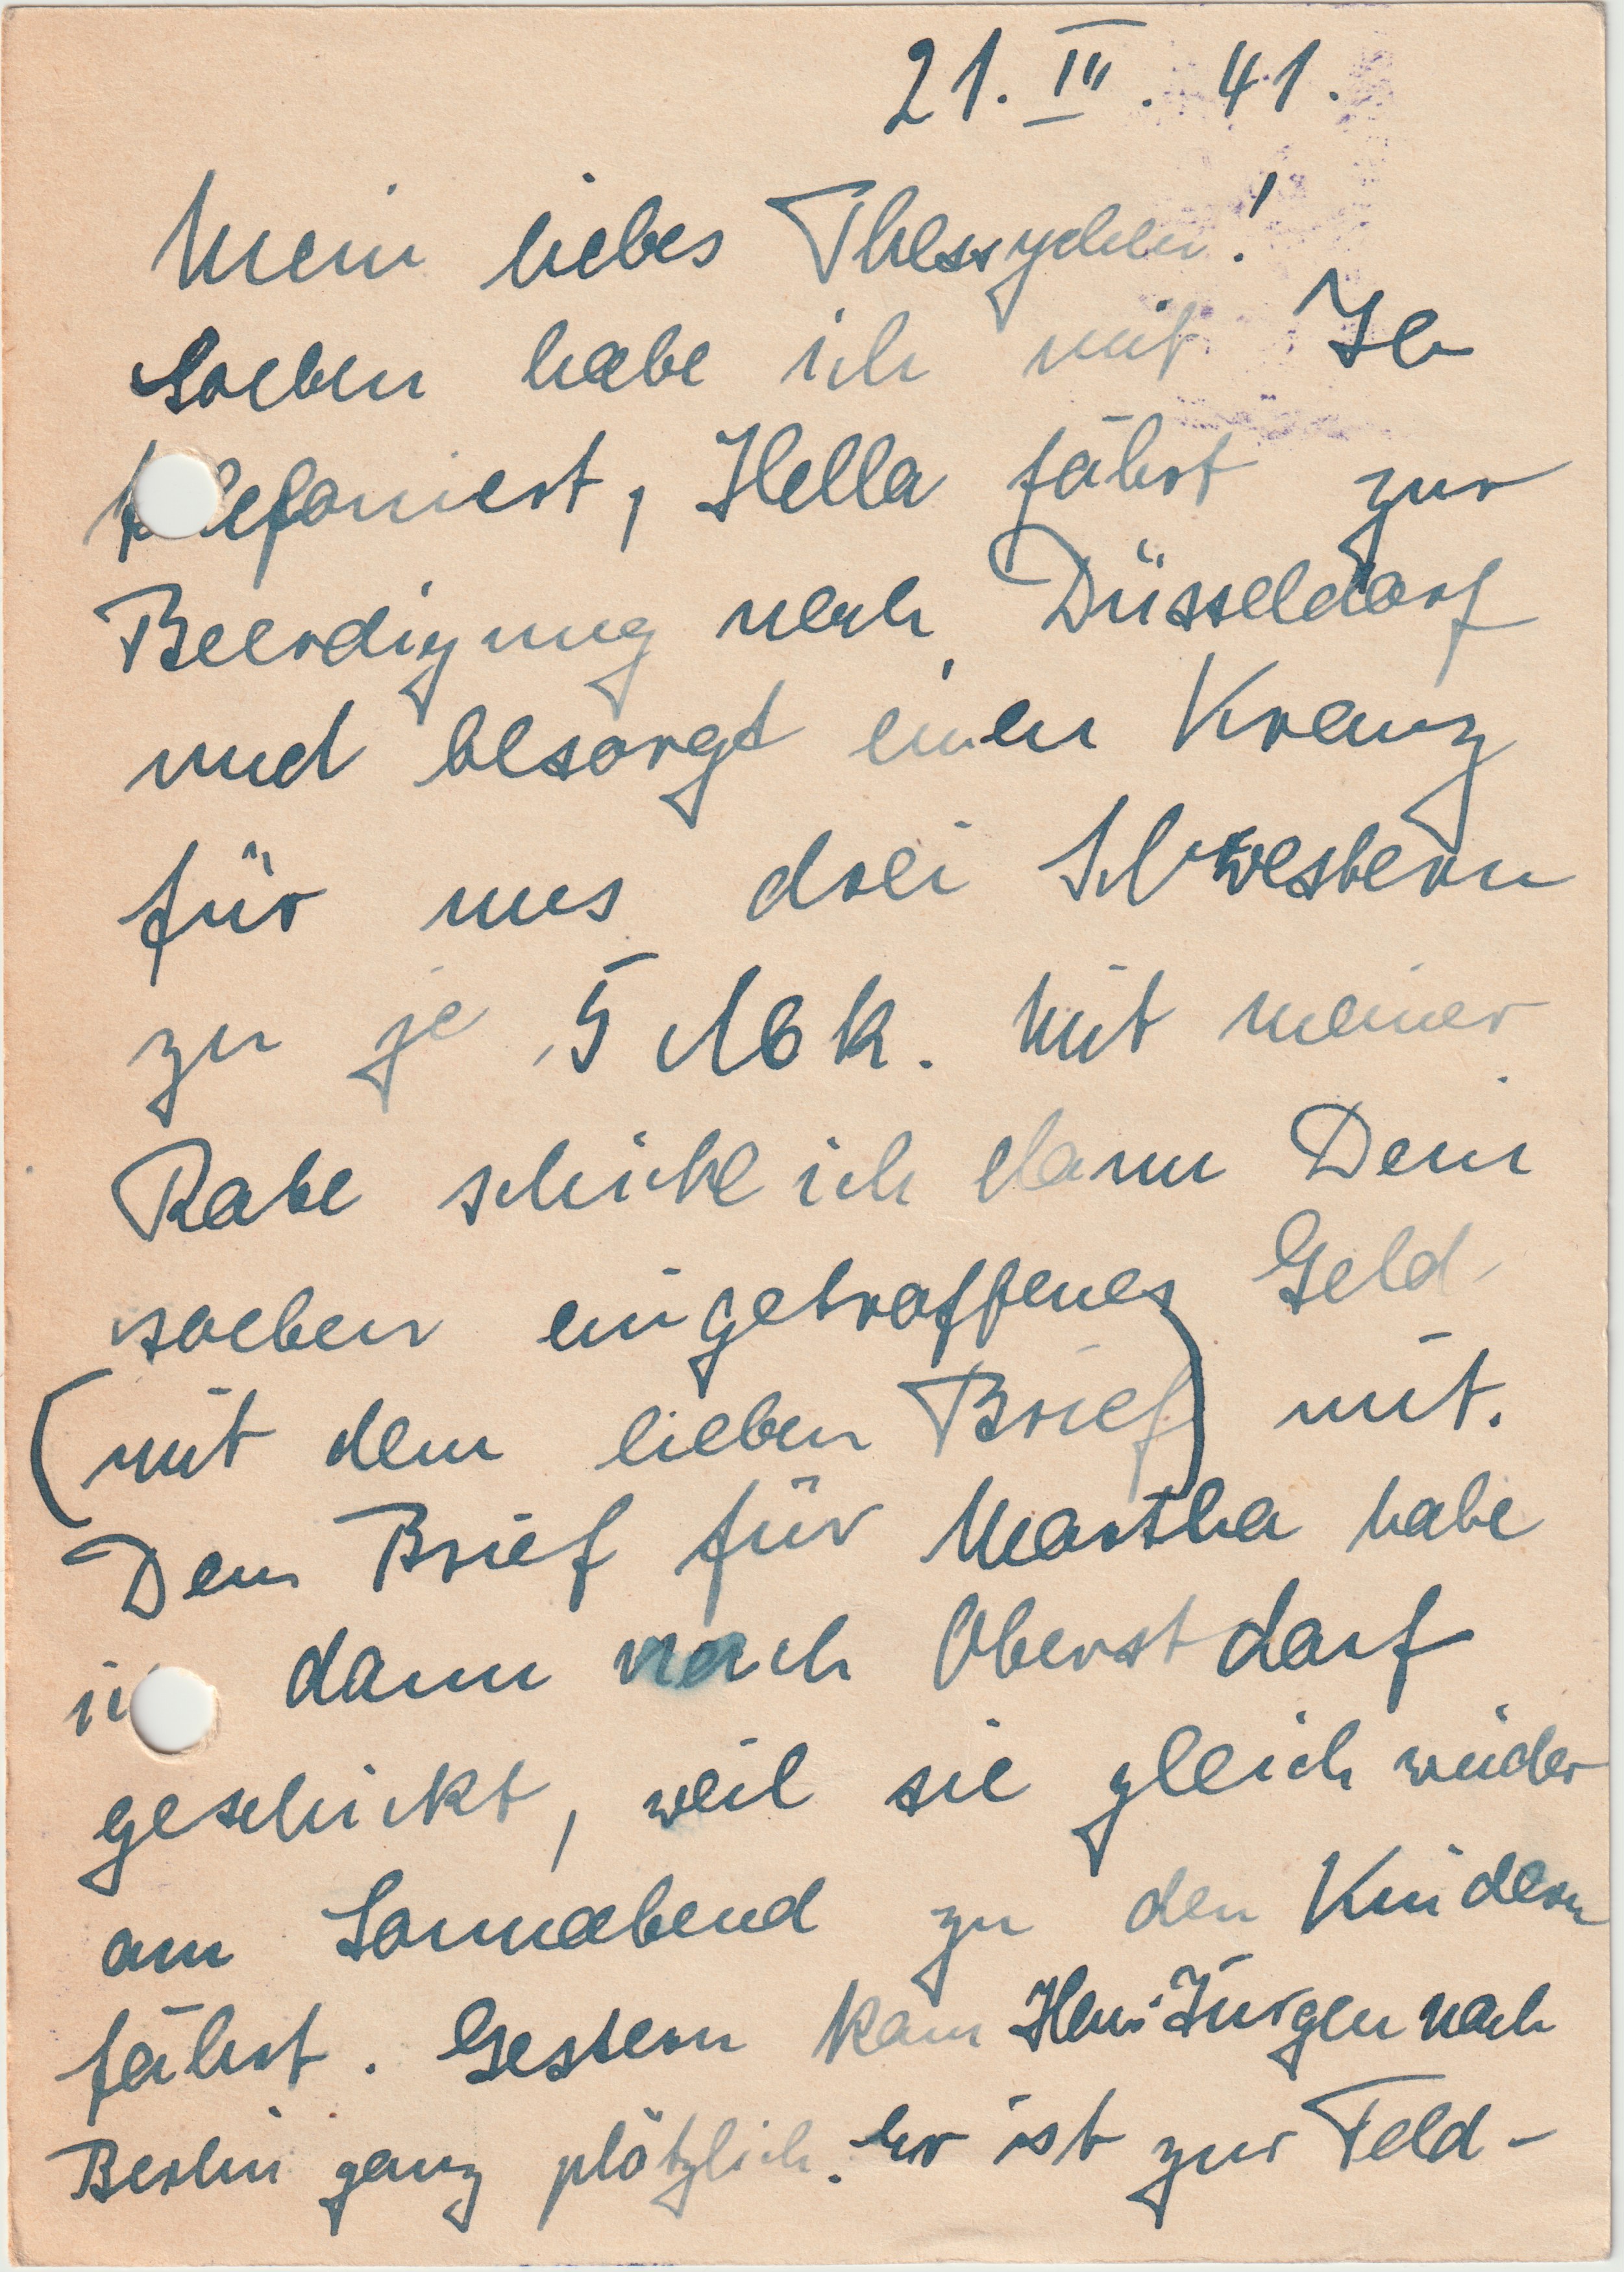 21. III. 41.
Mein liebes Thessychen!
Soeben habe ich mit
telefoniert, Hella fährt zur
Beerdigung nach Düsseldorf
und besorgt einen Kranz
für uns drei Schwestern
zu je 5 Mk. Mit meiner
Rate schicke ich dann Dein
soeben eingetroffenes Geld
(mit dem lieben Brief) mit.
Den Brief für Martha habe
ich dann nach Oberstdorf
geschickt, weil sie gleich wieder
am Sonnabend zu den Kindern
fährt. Gestern kam Hans Jürgen nach
Berlin ganz plötzlich. Er ist zur Feld-